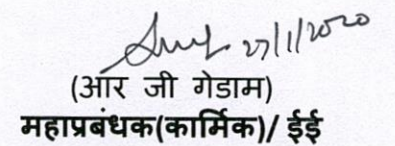 27/1/2020
(आर जी गेडाम)
महाप्रबंधक(कार्मिक)/ ईई